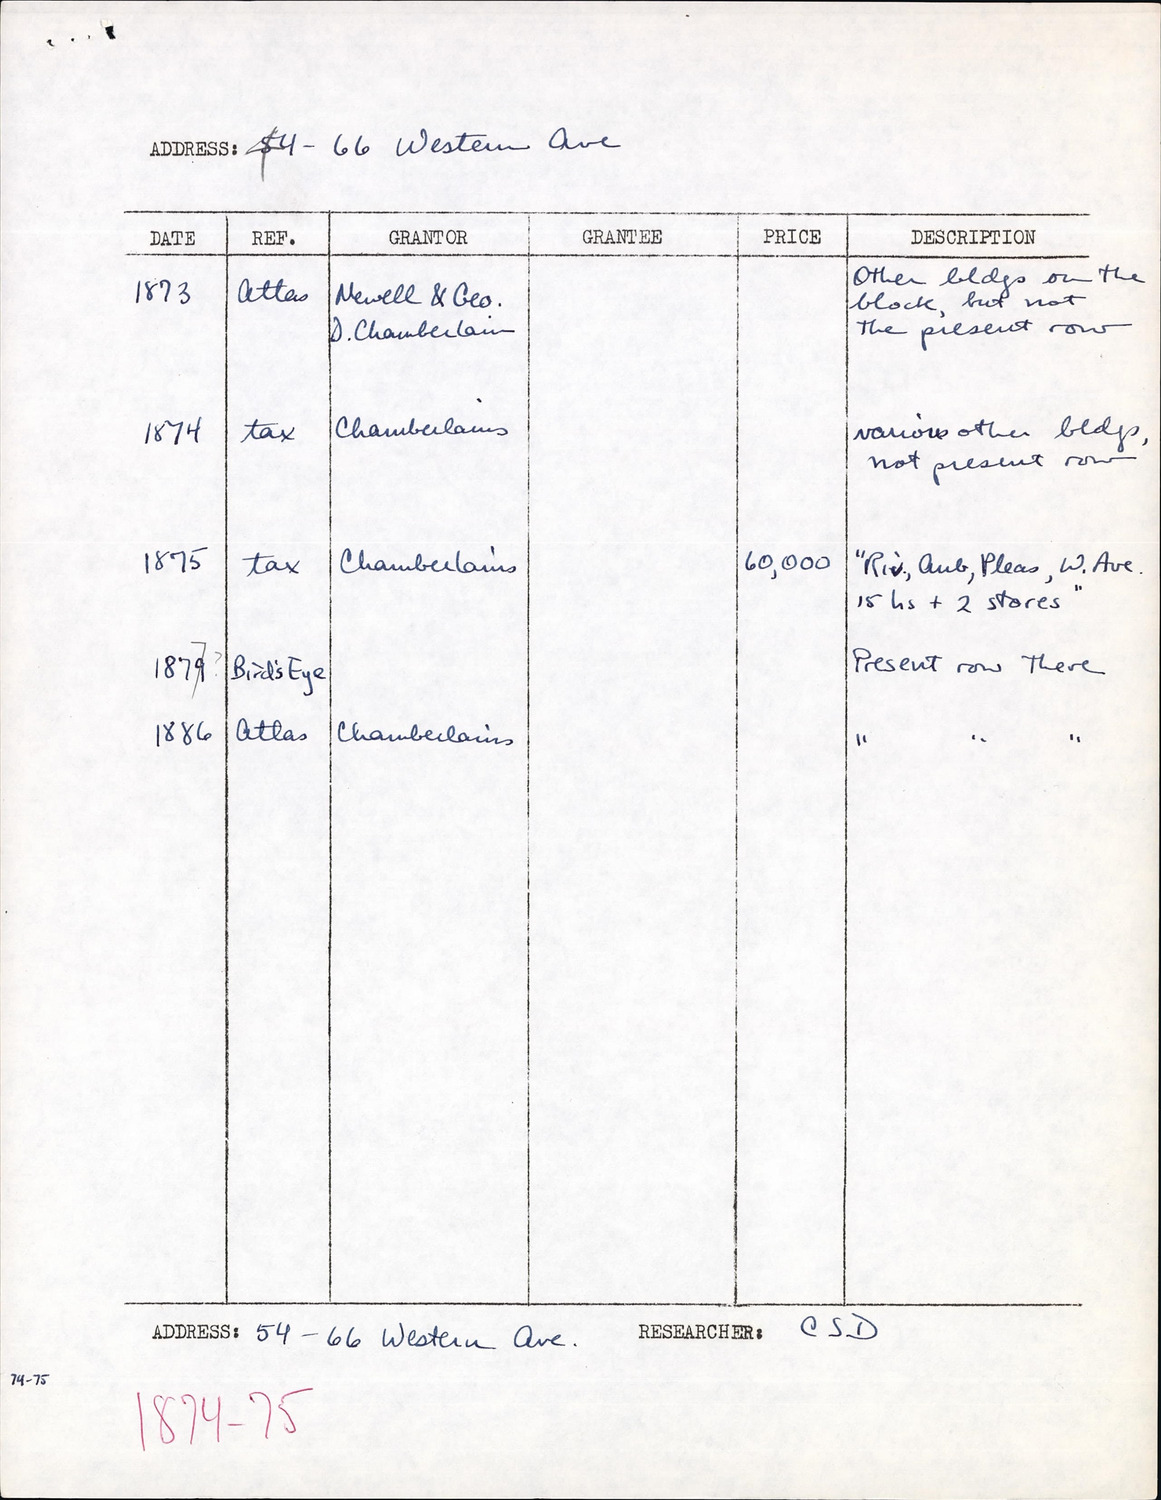 ADDRESS: 54-66 Western Ave
DATE REF. GRANTOR GRANTEE PRICE DESCRIPTION
1873 Atlas Newell & Geo. D. Chamberlain Other bldgs on the
block, but not
the present row
1874 tax Chamberlains various other bldgs,
not present row
1875 tax Chamberlains 60,000 "Riv, Aub, Pleas, W. Ave.
15 hs + 2 stores"
1877? Bird's Eye Present row there
1886 Atlas Chamberlains " " "
ADDRESS: 54-66 Western Ave. RESEARCHER: CSD
74-75
1874-75